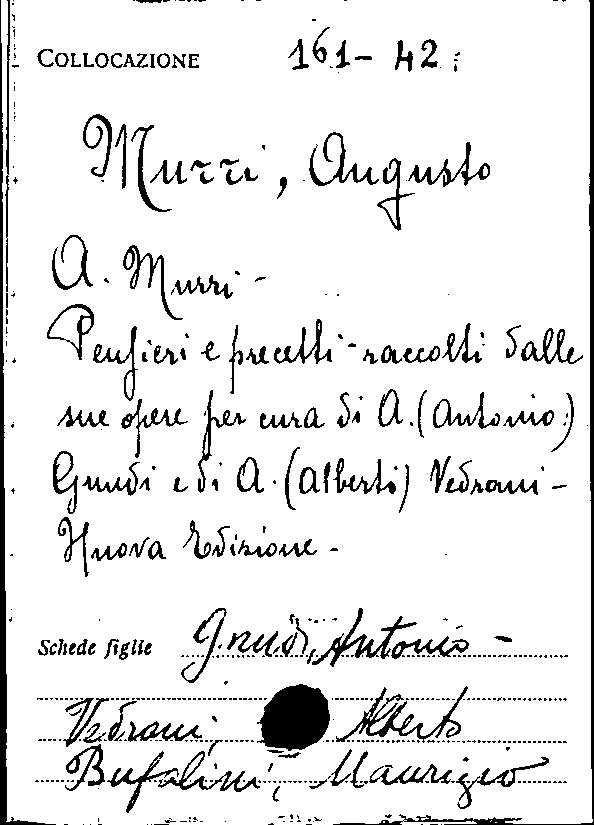 COLLOCAZIONE 161-42
Murri, Augusto
A. Murri -
Pensieri e precetti - raccolti dalle
sue opere per cura di A. (Antonio)
Gnudi e di A. (Alberto) Vedrani -
Nuova Edizione -
Schede figlie Gnudi, Antonio -
Vedrani, Alberto
Bufalini, Maurizio